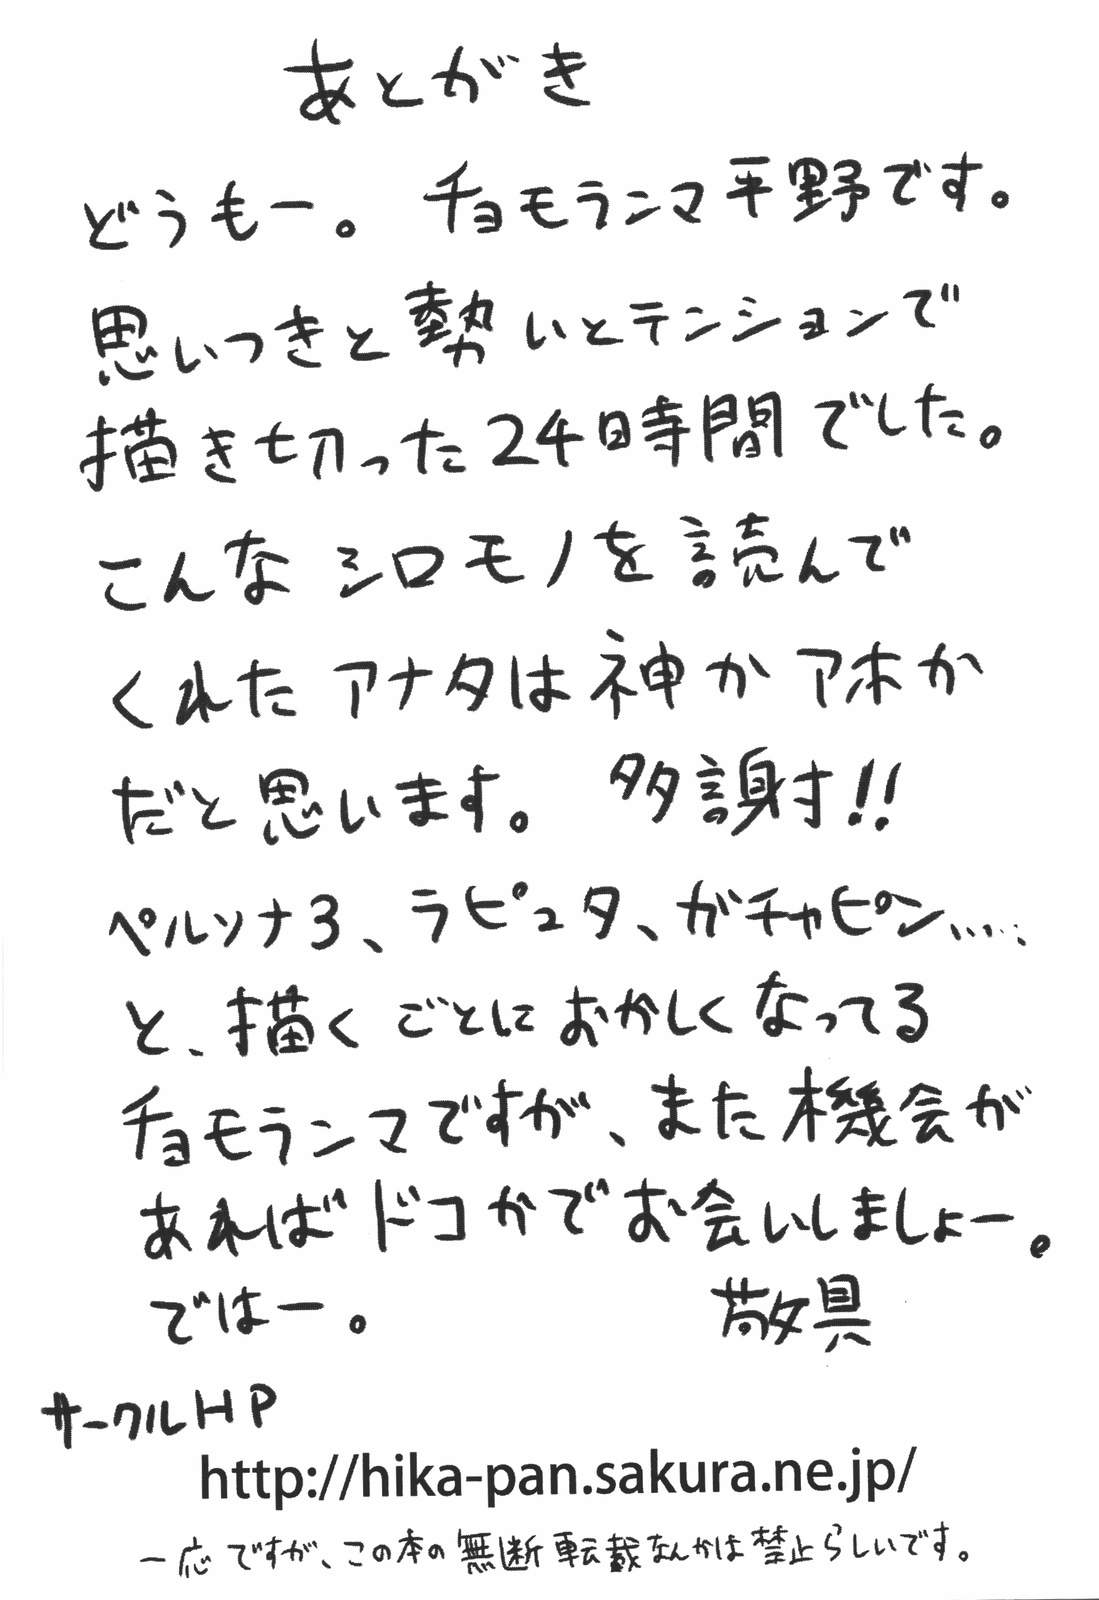 あとがき
どうもー。 チョモランマ平野です。
思いつきと勢いとテンションで
描き切った24時間でした。
こんなシロモノを読んで
くれたアナタは神かアホか
だと思います。 多謝!!
ペルソナ3、ラピュタ、ガチャピン……
と、描くごとにおかしくなってる
チョモランマですが、また機会が
あればドコかでお会いしましょー。
ではー。 敬具
サークルHP
http://hika-pan.sakura.ne.jp/
一応ですが、この本の無断転載なんかは禁止らしいです。